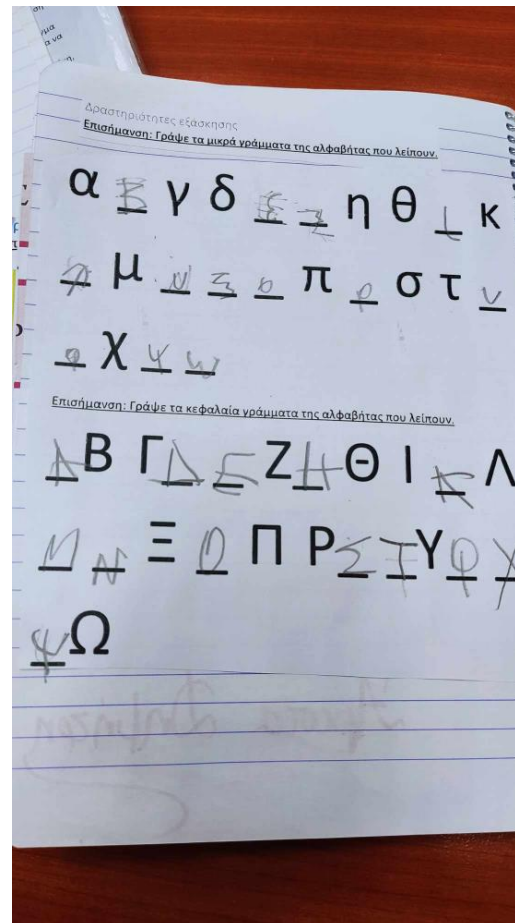 Δραστηριότητες εξάσκησης
Επισήμανση: Γράψε τα μικρά γράμματα της αλφαβήτας που λείπουν.
α β γ δ ε ζ η θ ι κ
λ μ ν ξ ο π ρ σ τ υ
φ χ ψ ω
Επισήμανση: Γράψε τα κεφαλαία γράμματα της αλφαβήτας που λείπουν.
Α Β Γ Δ Ε Ζ Η Θ Ι Κ Λ
Μ Ν Ξ Ο Π Ρ Σ Τ Υ Φ Χ
Ψ Ω